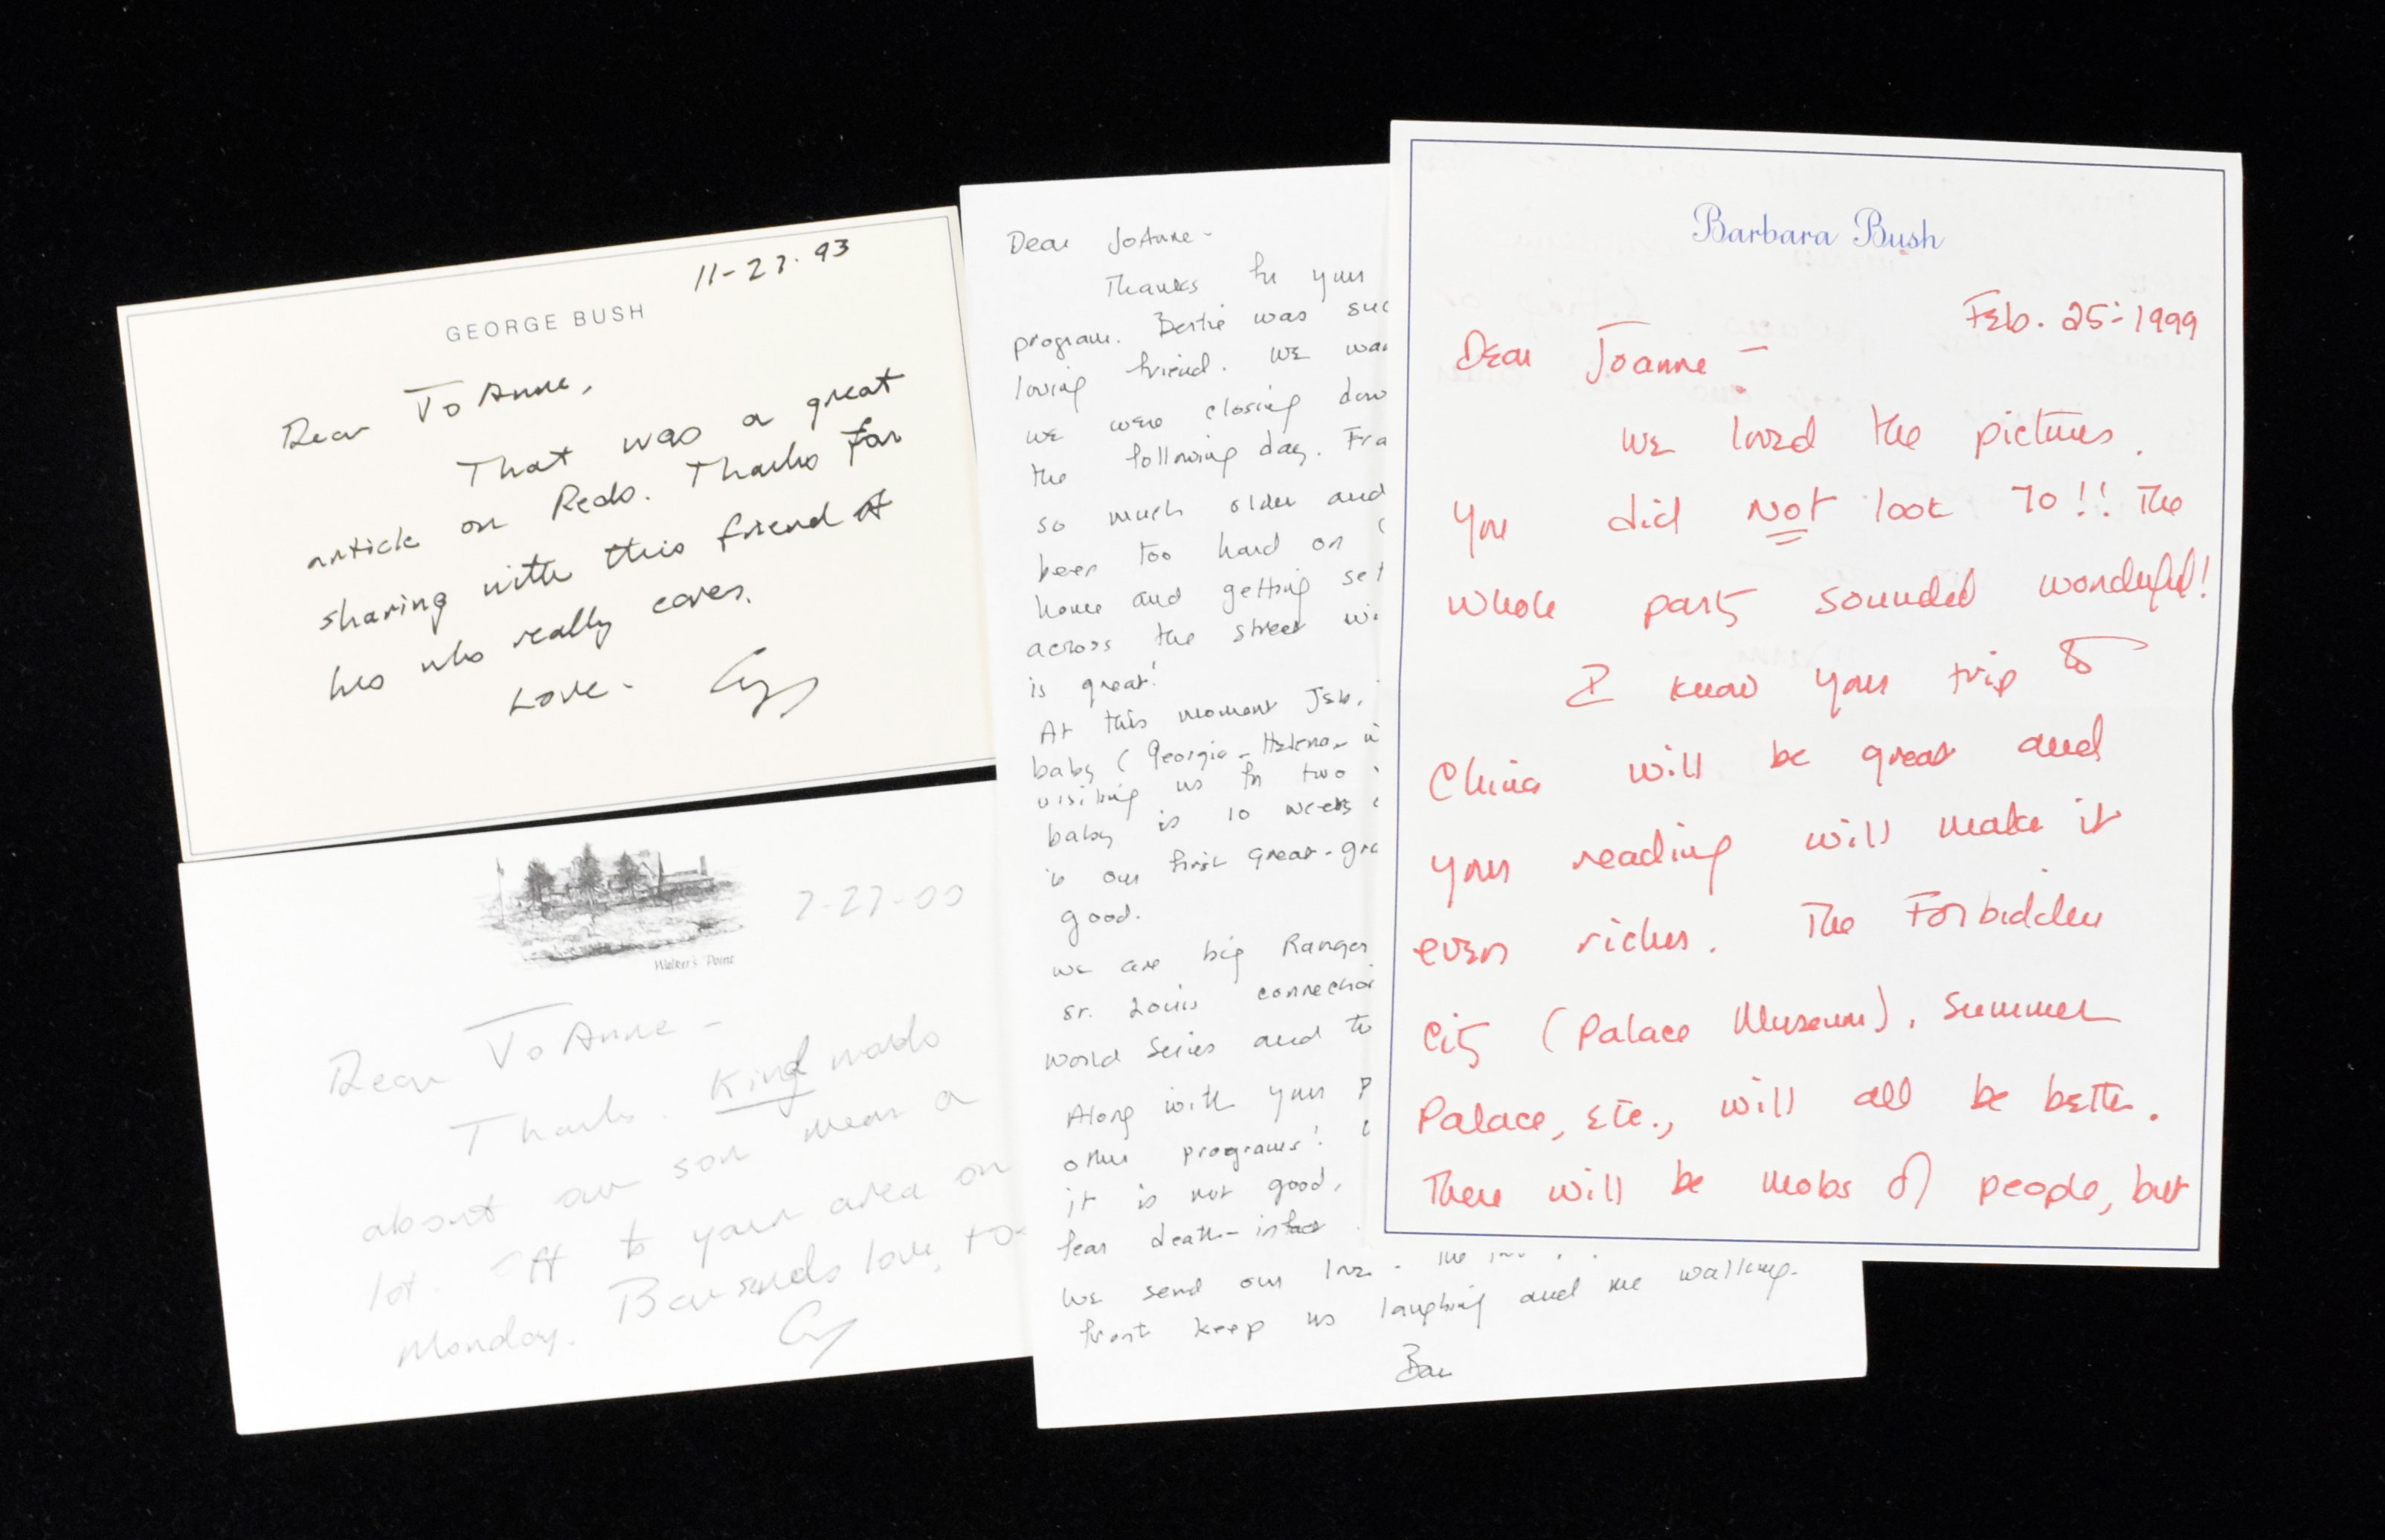 11-27-93
GEORGE BUSH
Dear Jo Anne,
That was a great
article on Redo. Thanks for
sharing with this friend of
his who really cares.
Love -
Walker's Point
7-27-00
Dear Jo Anne -
Thanks. Kind words
about our son mean a
lot. Off to your area on
Monday. Bar sends love, too
Dear JoAnne -
Thanks for your
program. Bertie was
loving friend. We
we were closing
the following day.
so much older and
been too hard on
home and getting
across the street
is great!
At this moment Jeb,
baby (Georgia Helena
visiting us for two
baby is 10 weeks
is our first great-
good.
We are big Ranger
St. Louis
World Series and
Along with your
other programs!
it is not good,
fear death - infact
We send our love -
front keep us laughing and me walking.
Bar
Barbara Bush
Feb. 25 - 1999
Dear Joanne -
We loved the pictures.
You did Not look 70!! The
whole party sounded wonderful!
I know your trip to
China will be great and
your reading will make it
even richer. The Forbidden
City (Palace Museum), Summer
Palace, etc., will all be better.
There will be mobs of people, but